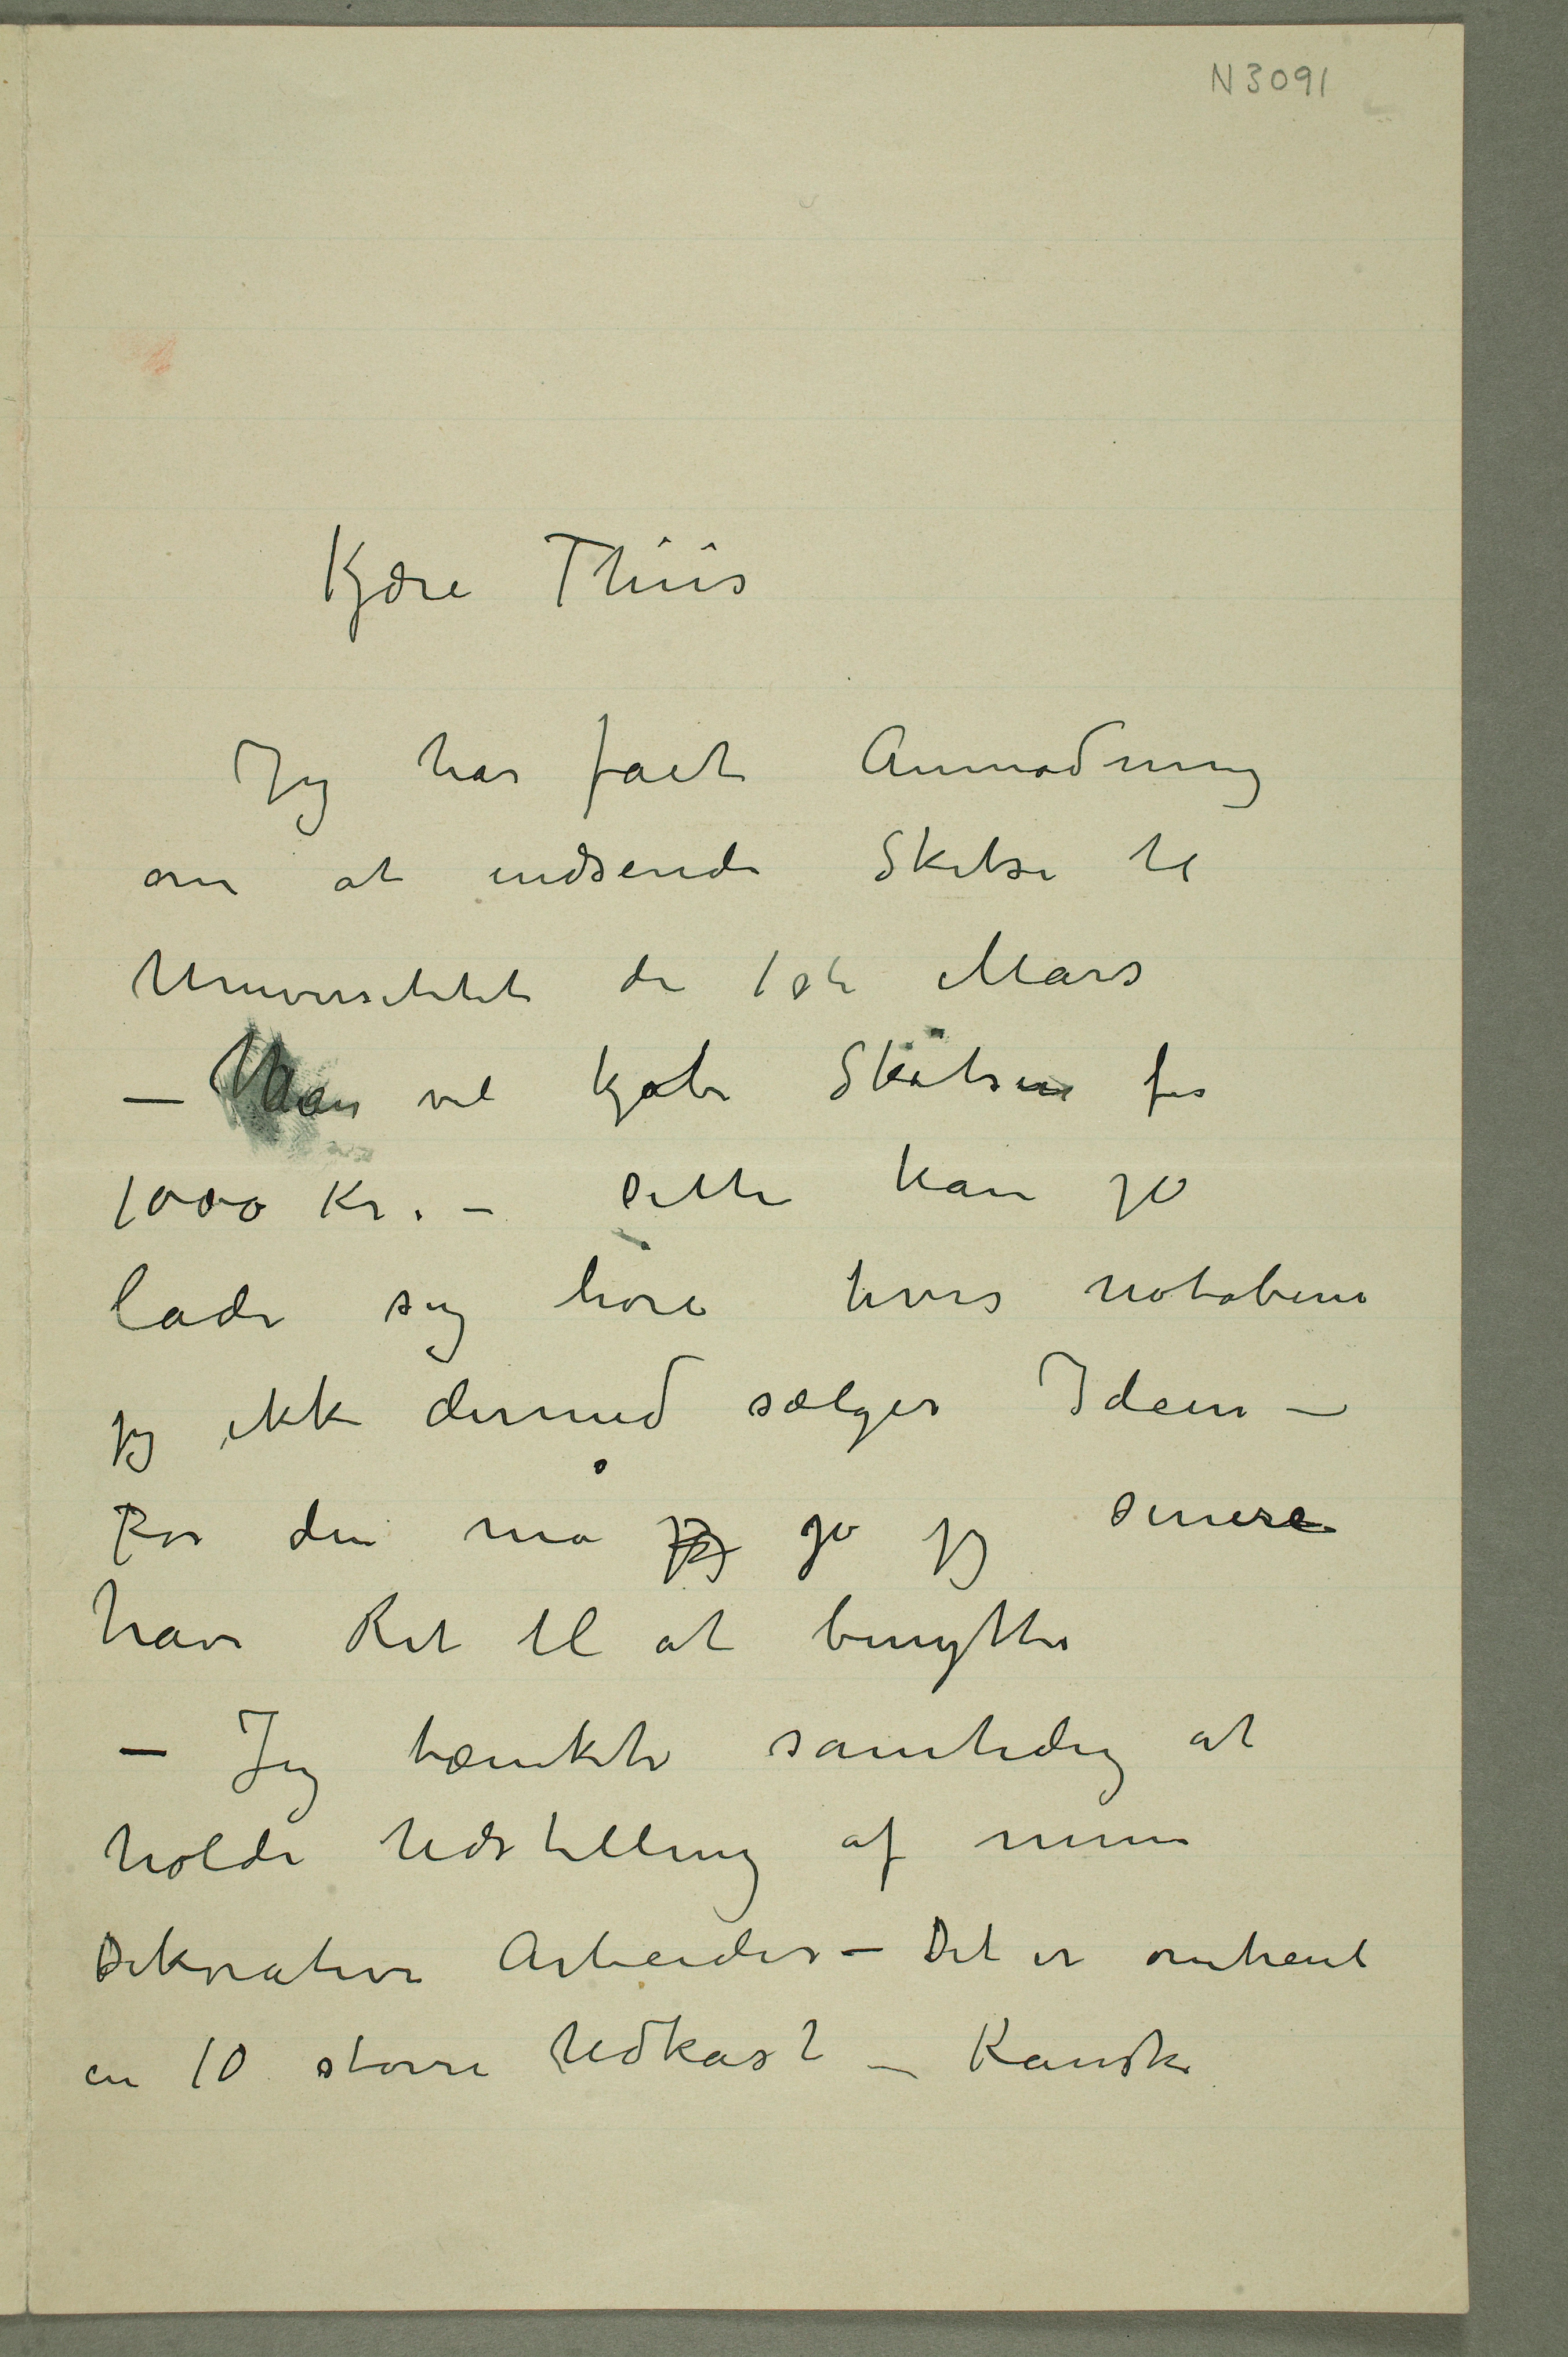 N 3091
Kjære Thiis
Jeg har faet Anmodning
om at indsende Skitse til
Universitetet de 1ste Mars
– Man vil kjøbe Skitsen for
1000 Kr. – Dette kan jo
lade sig høre hvis notabene
jeg ikke dermed sælger Ideen –
For den må jeg jo jeg senere
have Ret til at benytte
– Jeg tænkte samtidig at
holde Udstilling af mine
Dekorative Arbeider – Det er omtrent
en 10 større Udkast – Kanske